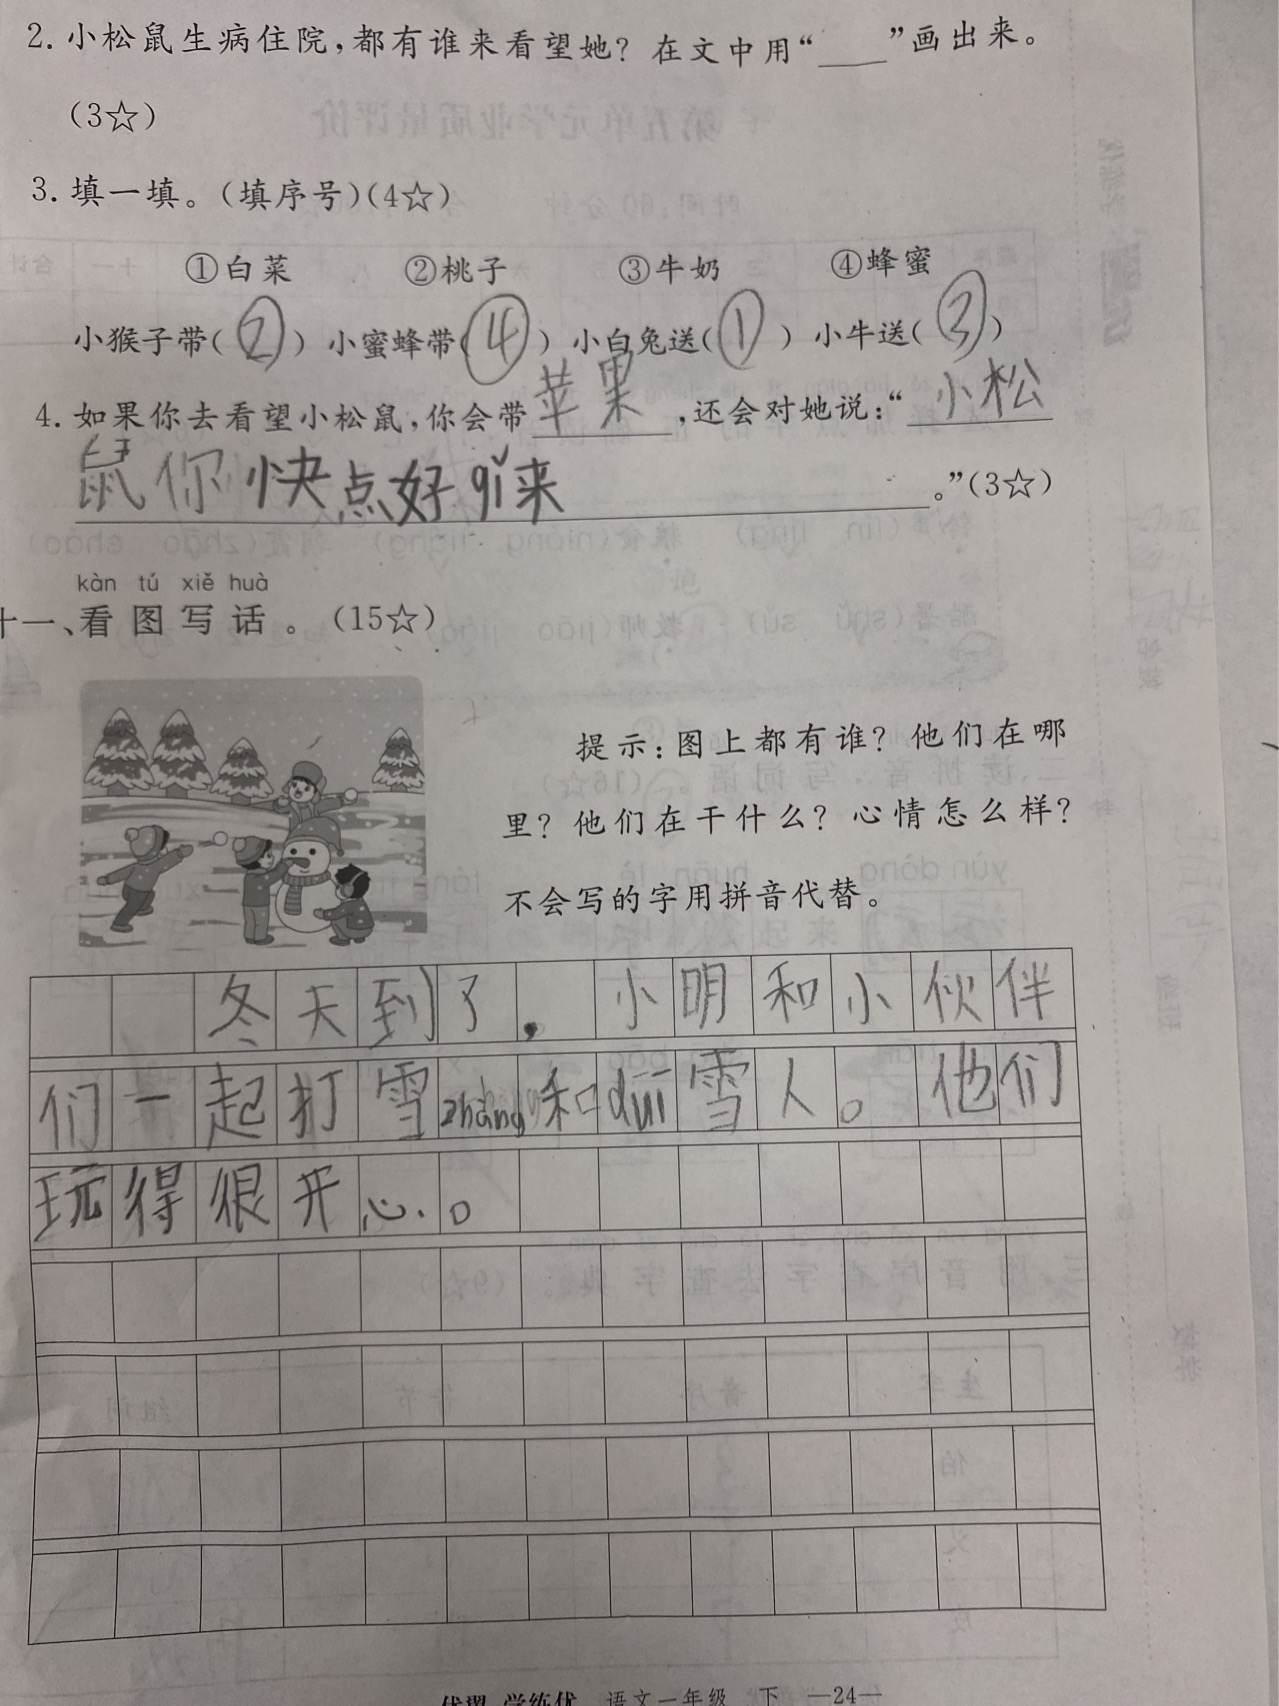 2. 小松鼠生病住院，都有谁来看望她？在文中用“____”画出来。
（3☆）
3. 填一填。（填序号）（4☆）
①白菜 ②桃子 ③牛奶 ④蜂蜜
小猴子带（②） 小蜜蜂带（④） 小白兔送（①） 小牛送（③）
4. 如果你去看望小松鼠，你会带苹果，还会对她说：“小松
鼠你快点好qǐ来。”（3☆）
kàn tú xiě huà
十一、看图写话。（15☆）
提示：图上都有谁？他们在哪
里？他们在干什么？心情怎么样？
不会写的字用拼音代替。
冬天到了，小明和小伙伴
们一起打雪zhàng和duī雪人。他们
玩得很开心。
优翼 学练优 语文一年级 下 —24—